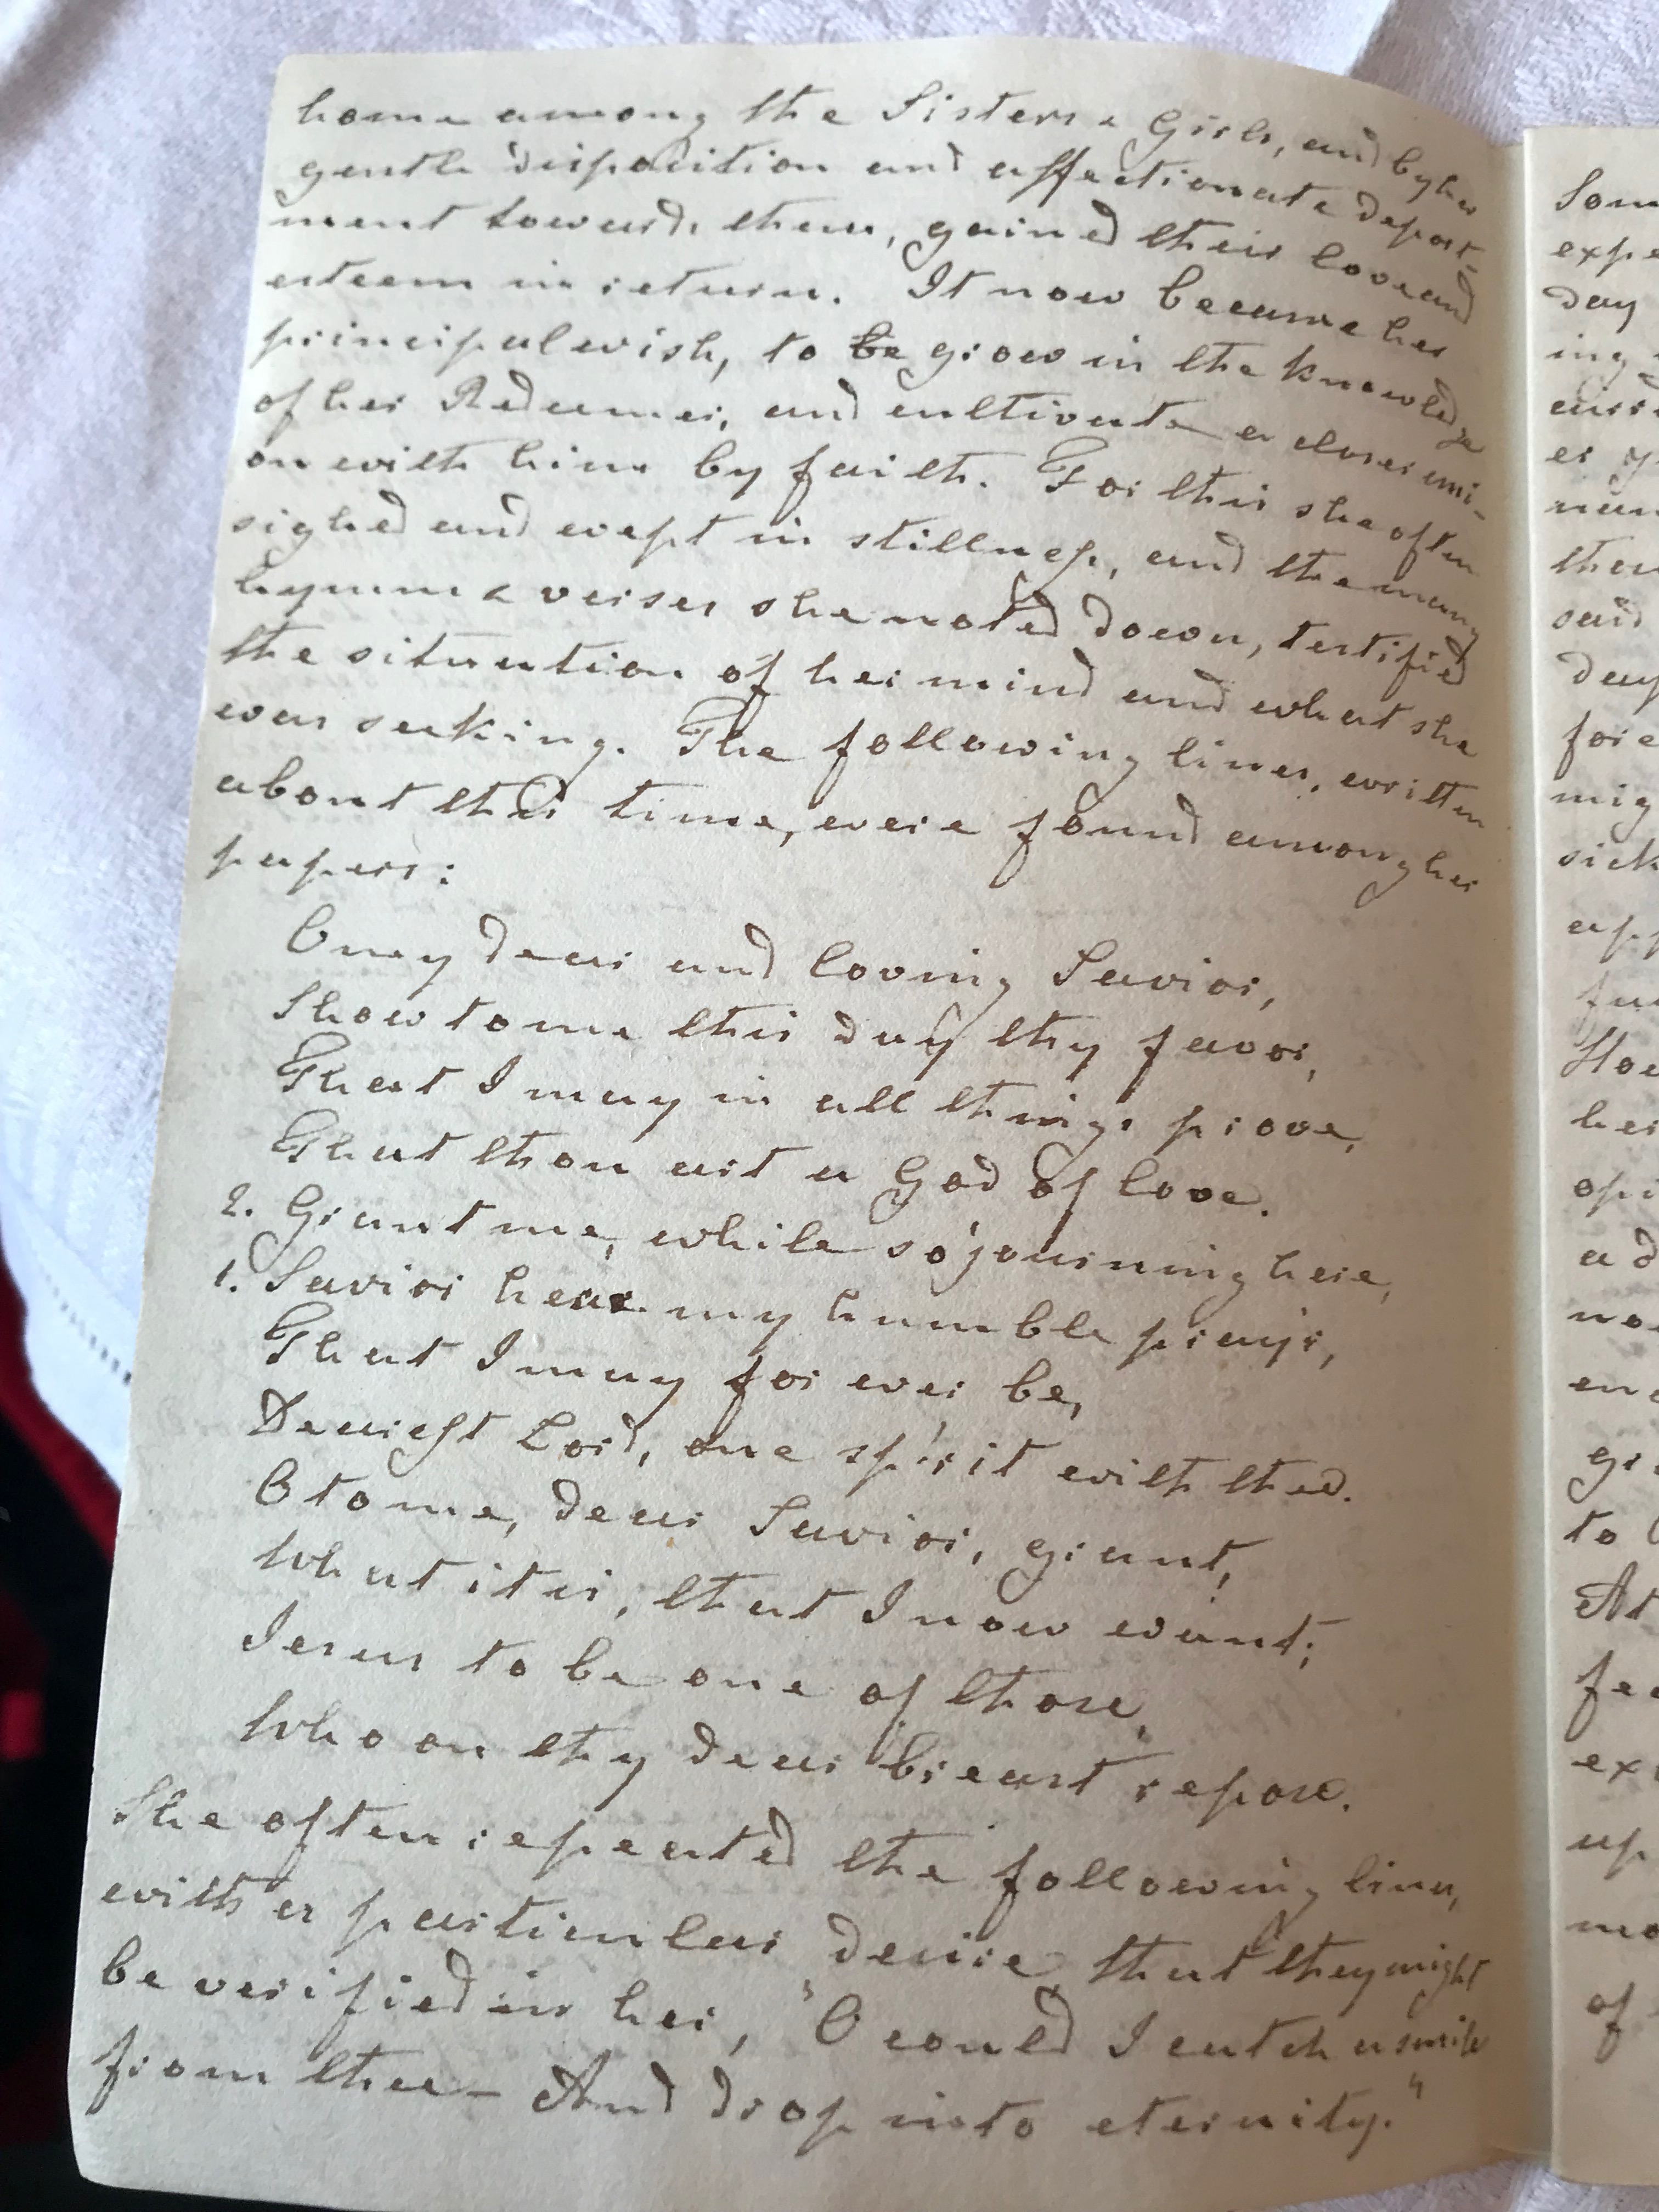 home among the Sisters & Girls, and by her
gentle disposition and affectionate deport-
ment towards them, gained their love and
esteem in return. It now became her
principal wish, to be grow in the knowledge
of her Redeemer, and cultivate a closer uni-
on with him by faith. For this she often
sighed and wept in stillness, and the many
hymns & verses she noted down, testified
the situation of her mind and what she
was seeking. The following lines, written
about this time, were found among her
papers:
O my dear and loving Savior,
Show to me this day thy favor,
That I may in all things prove,
That thou art a God of love.
2. Grant me, while sojourning here,
1. Savior hear my humble pray'r,
That I may for ever be,
Dearest Lord, one spirit with thee.
O to me, dear Savior, grant,
What it is, that I now want;
Jesus to be one of those,
Who on thy dear breast repose.
She often repeated the following lines,
with a particular desire that they might
be verified in her, "O could I catch a smile
from thee— And drop into eternity."
Som
expe
day
ing
er y
nun
then
said
day
fore
mig
sick
app
fu
How
her
opi
a d
no
enc
gr
to
At
fee
ex
up
mo
of